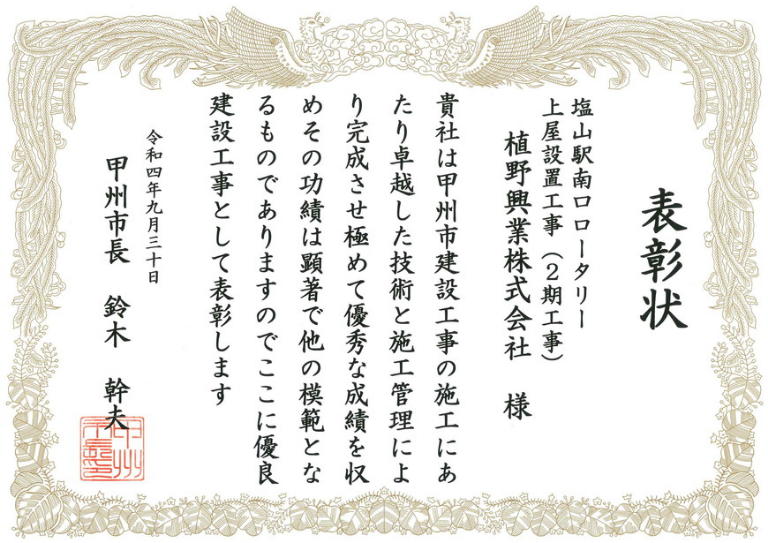 表彰状
塩山駅南口ロータリー
上屋設置工事（２期工事）
植野興業株式会社　様
貴社は甲州市建設工事の施工にあ
たり卓越した技術と施工管理によ
り完成させ極めて優秀な成績を収
めその功績は顕著で他の模範とな
るものでありますのでここに優良
建設工事として表彰します
令和四年九月三十日
甲州市長　鈴木　幹夫